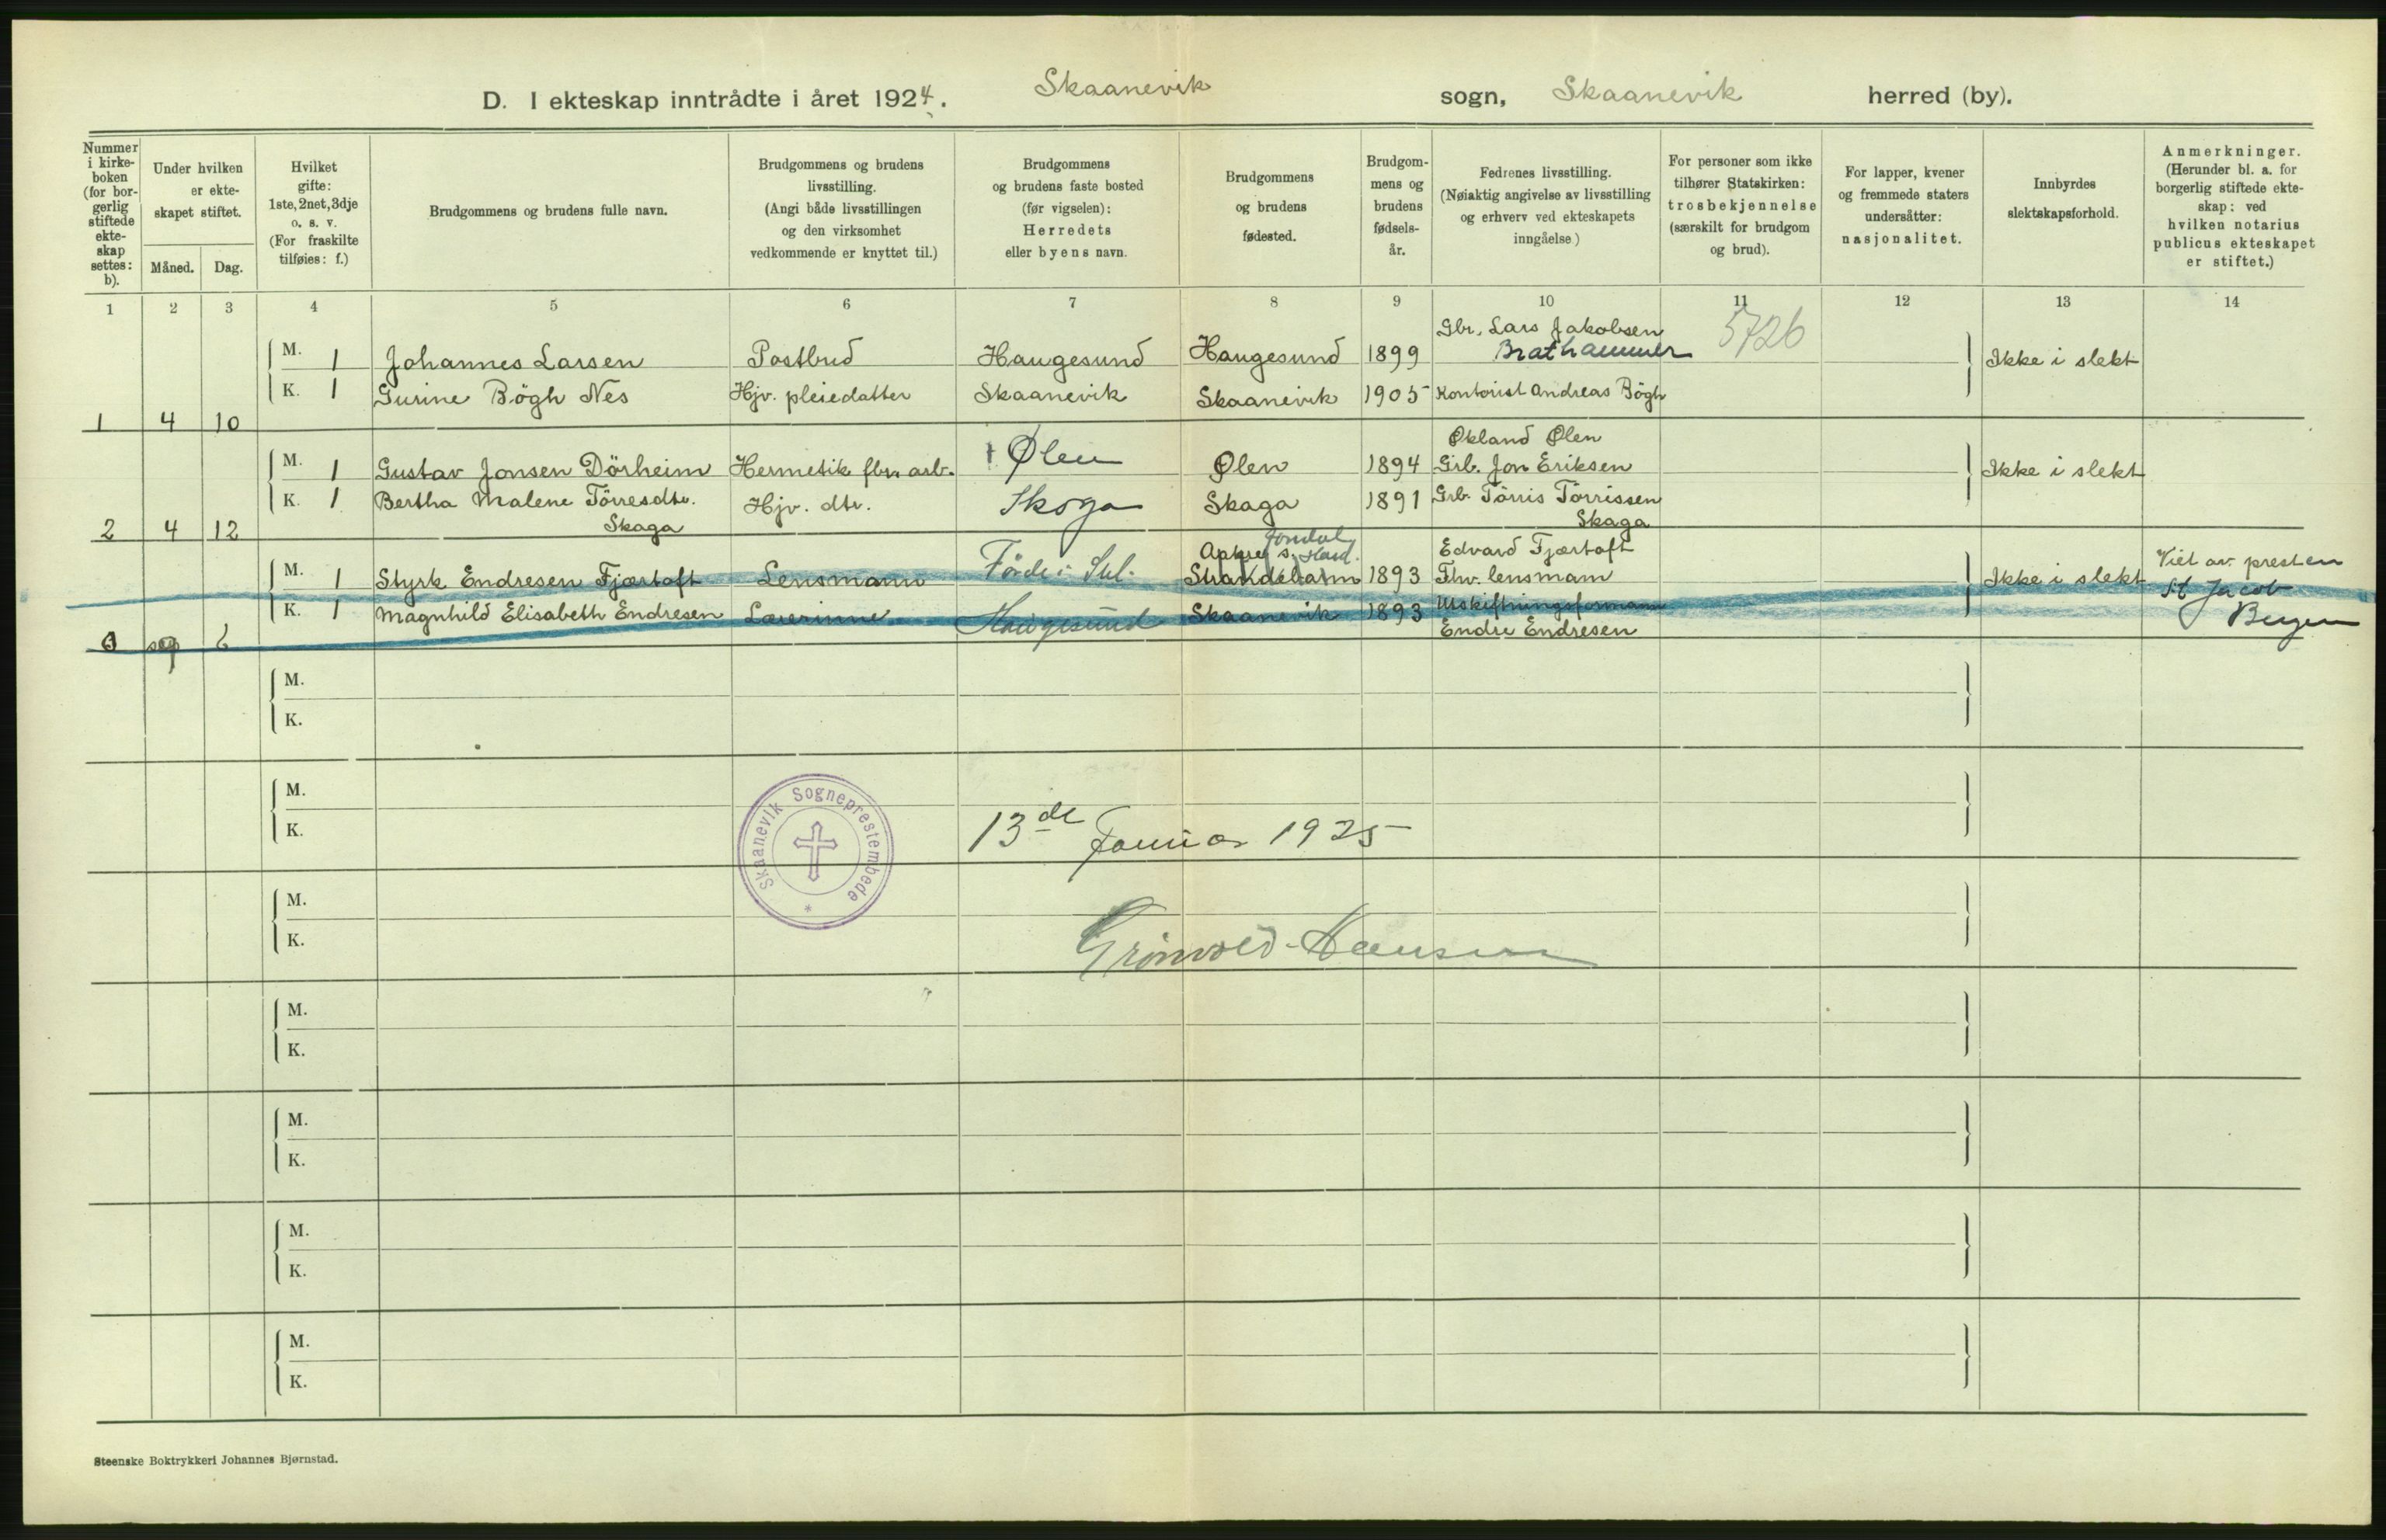 D. I ekteskap inntrådte i året 1924. Skaanevik sogn, Skaanevik herred (by).
Nummer i kirke- boken (for bor- gerlig stiftede ekte- skap settes: b).
Under hvilken er ekte- skapet stiftet.
Måned. Dag.
Hvilket gifte: 1ste, 2net, 3dje o. s. v. (For fraskilte tilføies: f.)
Brudgommens og brudens fulle navn.
Brudgommens og brudens livsstilling. (Angi både livsstillingen og den virksomhet vedkommende er knyttet til.)
Brudgommens og brudens faste bosted (før vigselen): Herredets eller byens navn.
Brudgommens og brudens fødested.
Brudgom- mens og brudens fødsels- år.
Fedrenes livsstilling. (Nøiaktig angivelse av livsstilling og erhverv ved ekteskapets inngåelse)
For personer som ikke tilhører Statskirken: trosbekjennelse (særskilt for brudgom og brud).
For lapper, kvener og fremmede staters undersåtter: nasjonalitet.
Innbyrdes slektskapsforhold.
Anmerkninger. (Herunder bl. a. for borgerlig stiftede ekte- skap: ved hvilken notarius publicus ekteskapet er stiftet.)
1 2 3 4 5 6 7 8 9 10 11 12 13 14
Gbr. Lars Jakobsen 5726
M. 1 Johannes Larsen Postbud Haugesund Haugesund 1899 Brathammer Ikke i slekt
K. 1 Gurine Bögh Nes Hjv. pleiedatter Skaanevik Skaanevik 1905 Kontorist Andreas Bögh
1 4 10
Økland Ølen
M. 1 Gustav Jonsen Dörheim Hermetik fbr. arb. Ølen Ølen 1894 Grb. Jon Eriksen Ikke i slekt
K. 1 Bertha Malene Törresdtr. Hjv. dtr. Skoga Skaga 1891 Grb. Törris Törrissen
2 4 12 Skaga Skaga
Jondal
Edvard Fjærtoft Viet av presten
M. 1 Styrk Endresen Fjærtoft Lensmann Førde i Strandebarm 1893 Fhv. lensmann Ikke i slekt St Jacob
K. 1 Magnhild Elisabeth Endresen Lærerinne Haugesund Skaanevik 1893 Utskiftningsformann Bergen
sep 6 Endre Endresen
M.
K.
M.
K.
Skaanevik Sogneprestembede
13de Januar 1925
M.
K.
Grönvold-Hansen
M.
K.
M.
K.
M.
K.
M.
K.
Steenske Boktrykkeri Johannes Bjørnstad.